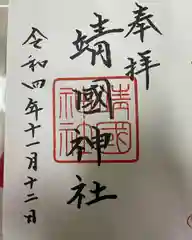 奉拝
靖國神社
令和四年十一月十二日
靖國神社